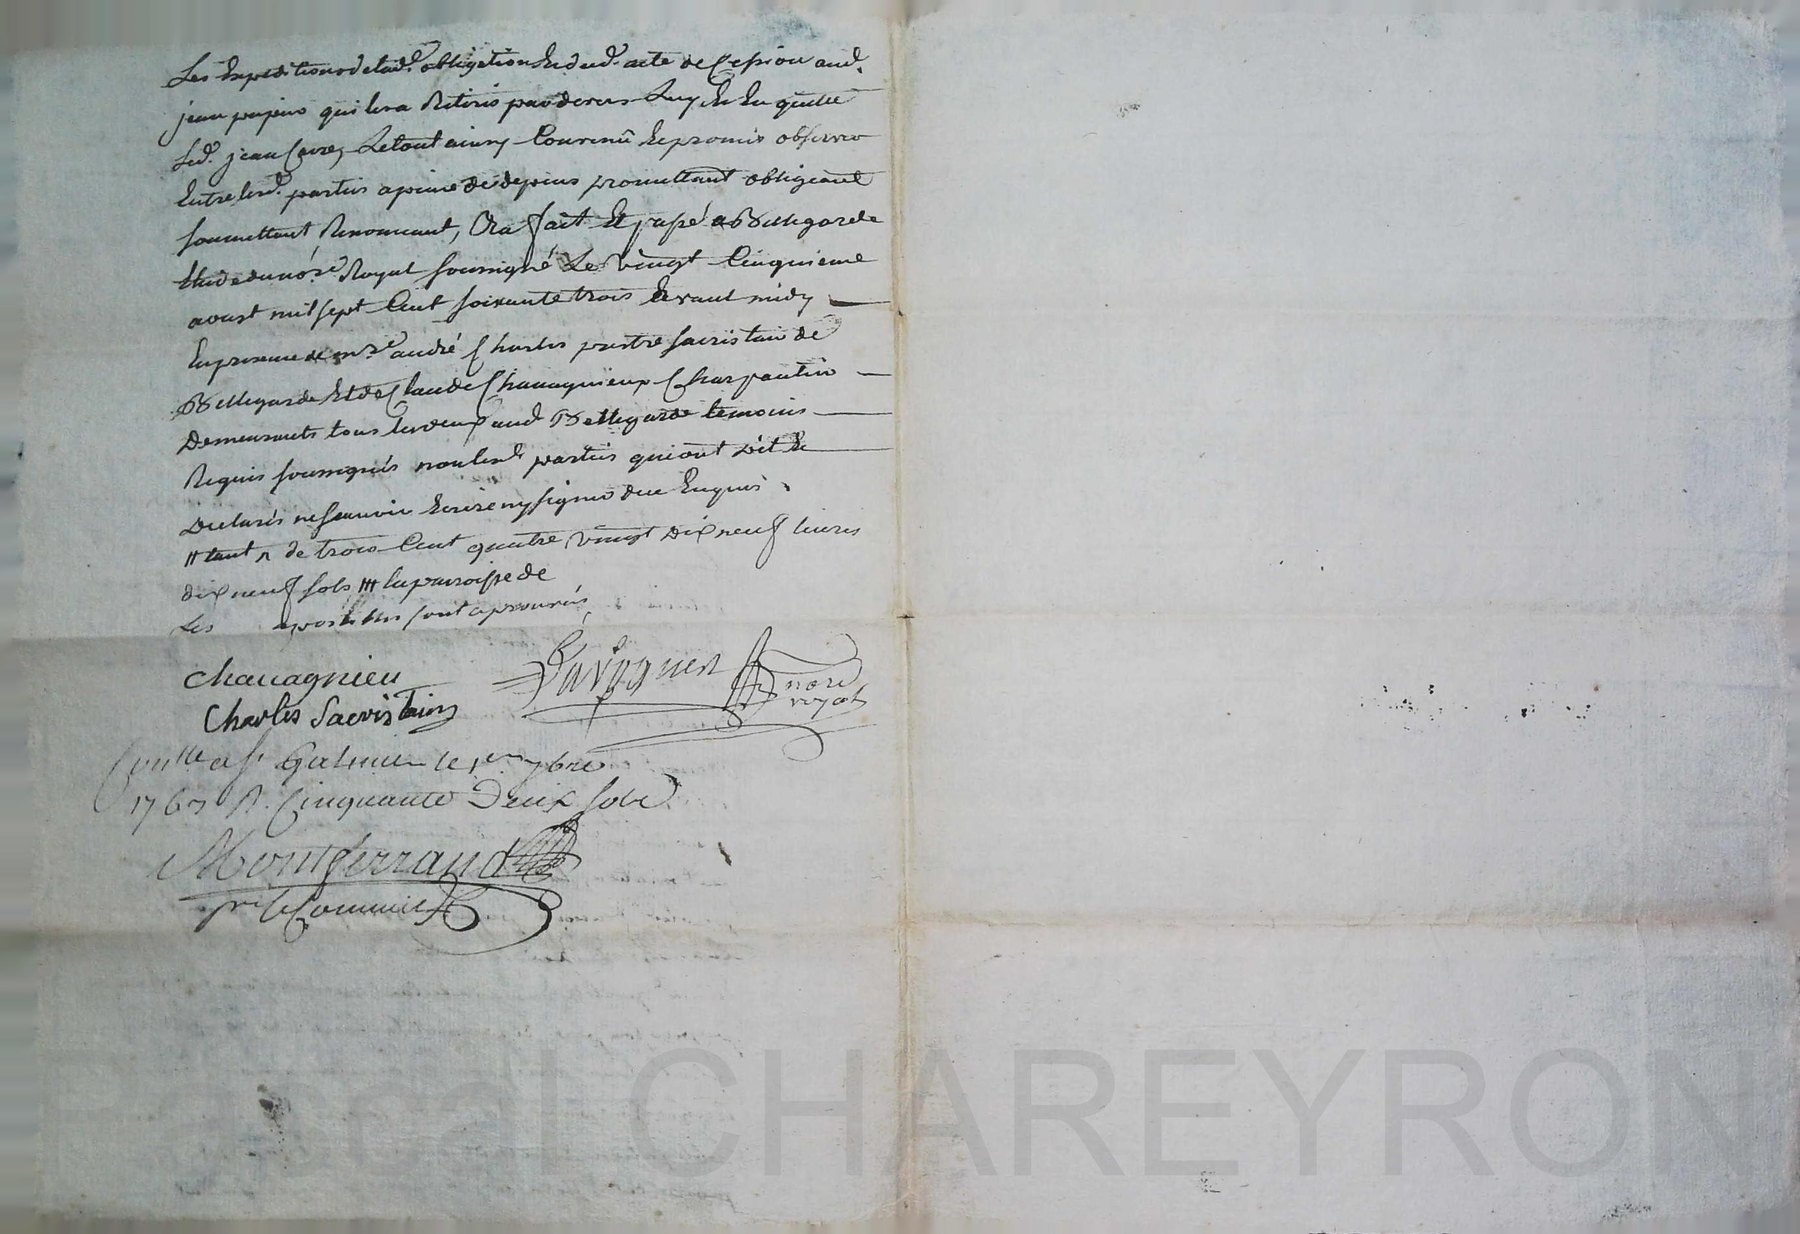 Les Expeditions de lad.e obligation Et dud. acte de Cession aud.
jean papin qui les a Retirés par devers Luy Et En quitte
Led. jean Le tout ainsy Convenû Et promis observer
Entre lesd. parties a peine de depens promettant obligeant
soumettant Renonceant, Cra fait Et passé a Bellegarde
Etude du no.re Royal soussigné Le vingt Cinquieme
aoust mil sept Cent soixante trois avant midy
En presence de m.re andré Charles prestre sacristain de
Bellegarde Et de Claude Chavagnieux Charpantier
Demeurants tous les deux aud. Bellegarde temoins
Requis soussignés non lesd. parties qui ont dit Et
Declarés ne sçauoir Ecrire ny signer de ce Enquis
tant de trois Cent quatre vingt dix neuf livres
dix neuf sols la parroisse de
Les apostilles sont aprouvés
chauagnieu
no.re royal
Charles Sacristain
Con.lle a s.t Galmier le 1.er 7bre
1763 R. Cinquante Deux sols
Montferrand
p.r le Commis
Pascal CHAREYRON